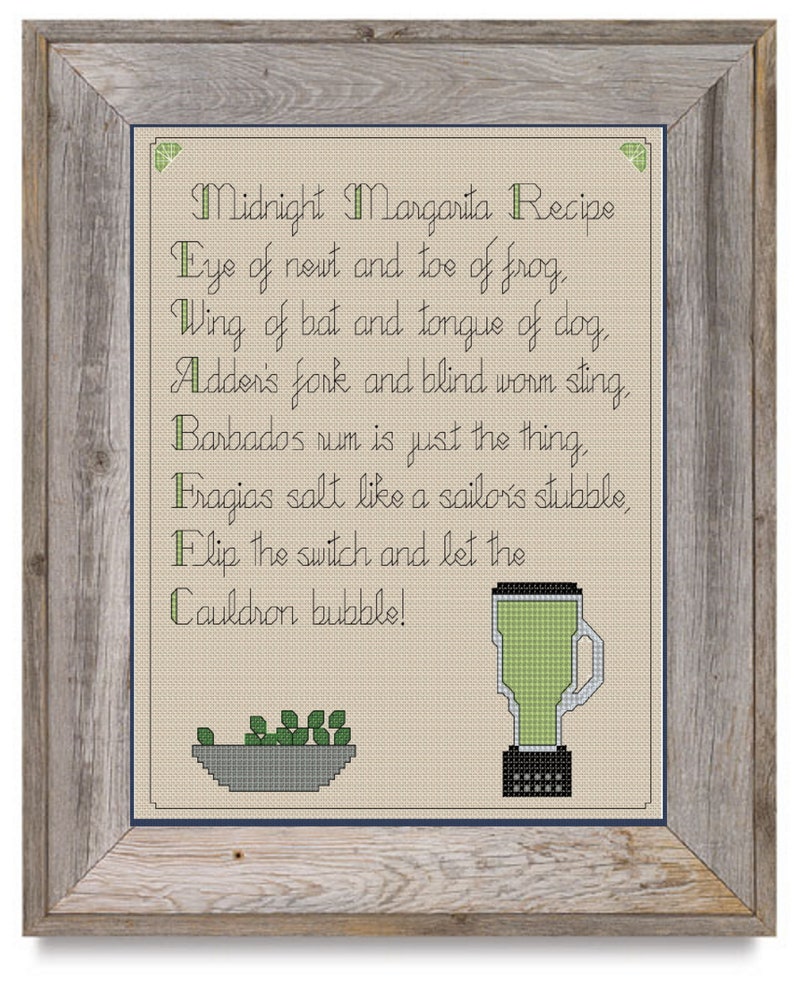 Midnight Margarita Recipe
Eye of newt and toe of frog,
Wing of bat and tongue of dog,
Adder's fork and blind worm sting,
Barbados rum is just the thing,
Fragias salt like a sailor's stubble,
Flip the switch and let the
Cauldron bubble!